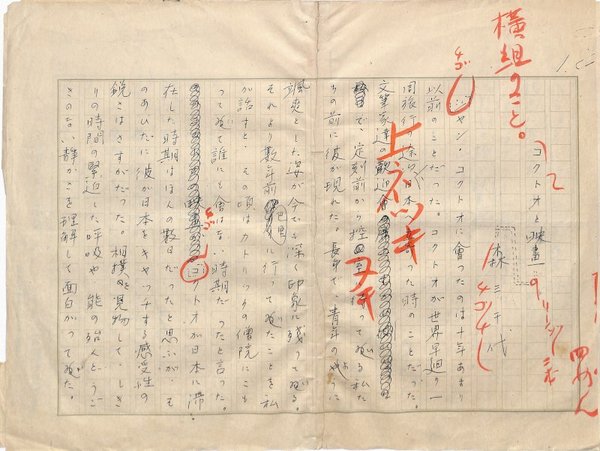 横組のこと。
コクトオと映畫
森 三千代
ジャン・コクトオに會ったのは十年あまり
以前のことだった。コクトオが世界早廻り一
周旅行の途 日本に寄った時のことだった。
文筆家達の歓迎会の
で、定刻前から控 待ってゐる私た
ちの前に彼が現れた。長身で、青年のやうに
颯爽とした姿が今でも深く印象に残ってゐる。
それより数年前巴里に行ってゐたことを私
が話すと、その頃はカトリックの僧院にこも
ってゐて誰にも會はない時期だったと言った。
コクトオが日本に滞
在した時期はほんの数日だったと思ふが、そ
のあひだに彼が日本をキャッチする感受性の
鋭さはさすがだった。相撲を見物して、しき
りの時間の緊迫した呼吸や、能の殆んどうご
きのない静かさを理解して面白がってゐた。
上ネツキ
ヌキ